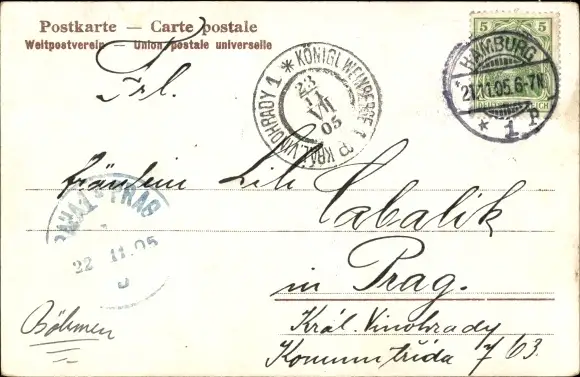 Postkarte — Carte postale
Weltpostverein — Union postale universelle
5 5
DEUTSCHES REICH
HAMBURG
21.11.05.6-7N.
* 1 P
KÖNIGL. WEINBERGE 1
KRÁL. VINOHRADY 1
23
VII
05
Frl.
Fräulein Lili Cabalik
in Prag.
Král. Vinohrady
63.
PRAG
22 11.05
Böhmen